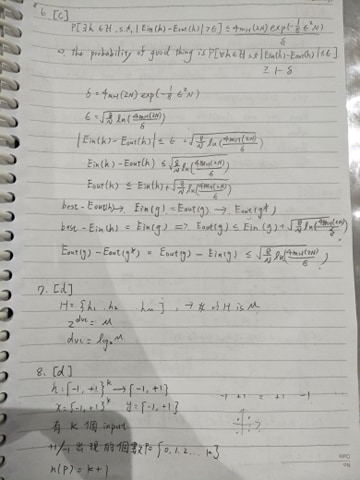 6. [c]
P[∃h∈H, s.t. |Ein(h)-Eout(h)|>ε] ≤ 4mH(2N)exp(-1/8 ε²N)
δ
the probability of good thing is P[∀h∈H, s.t. |Ein(h)-Eout(h)|≤ε]
≥ 1-δ
δ = 4mH(2N)exp(-1/8 ε²N)
ε = √(8/N ln(4mH(2N)/δ))
|Ein(h)-Eout(h)| ≤ ε = √(8/N ln(4mH(2N)/δ))
Ein(h)-Eout(h) ≤ √(8/N ln(4mH(2N)/δ))
Eout(h) ≤ Ein(h)+√(8/N ln(4mH(2N)/δ))
best-Eout(h) → Ein(g) = Eout(g) → Eout(g*)
best-Ein(h) = Ein(g) => Eout(g) ≤ Ein(g)+√(8/N ln(4mH(2N)/δ))
Eout(g)-Eout(g*) = Eout(g)-Ein(g) ≤ √(8/N ln(4mH(2N)/δ))
7. [d]
H = {h1, h2 hM}, → # of H is M
2^dvc = M
dvc = log2 M
8. [d]
h: {-1, +1}^k → {-1, +1}
x = {-1, +1}^k y = {-1, +1}
-1 +1 = +1 -1
有 k 個 input
+1/-1 出現的個數 P = {0, 1, 2, ... k}
n(P) = k+1